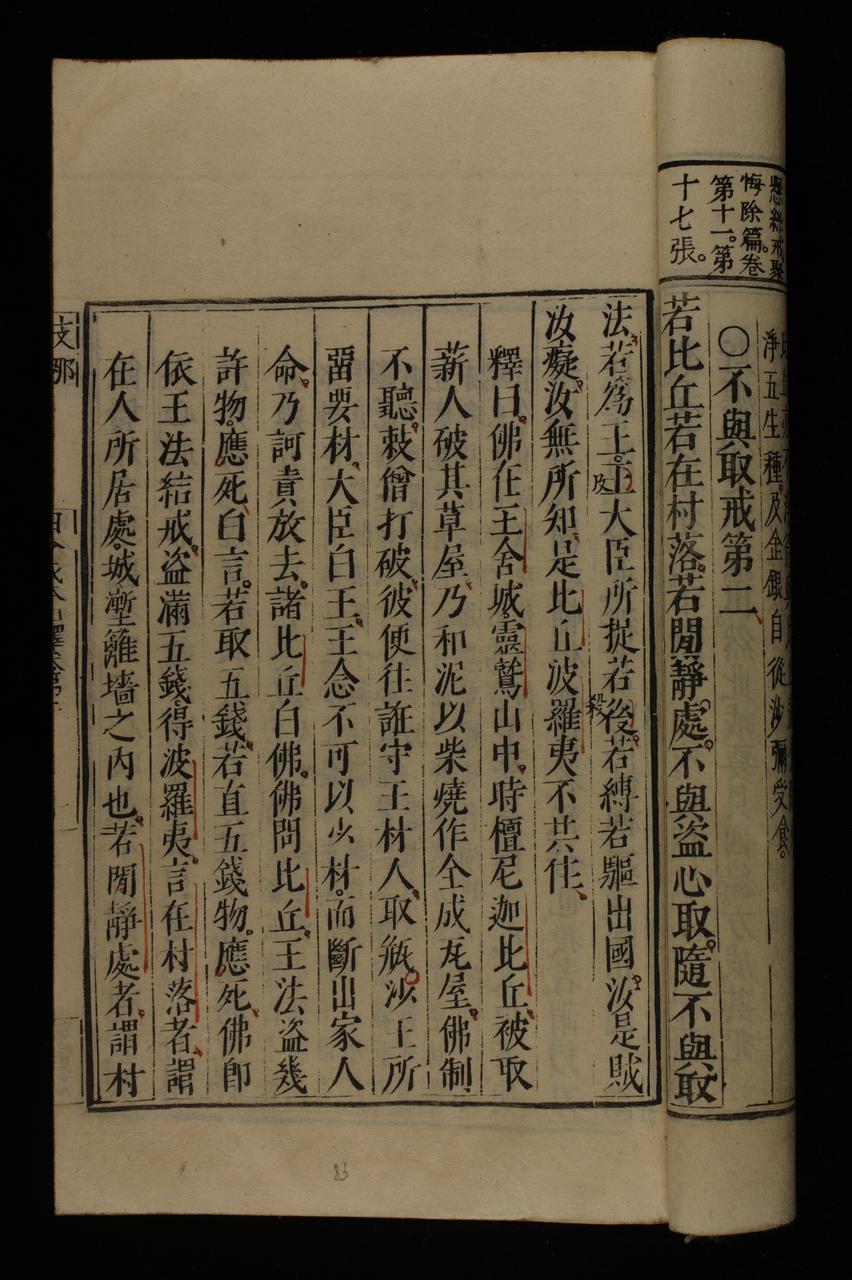 懸絲戒聚
悔除篇。卷
第十一。第
十七張。
淨五生種。及金銀自從沙彌受食。
〇不與取戒第二
若比丘若在村落。若閒靜處。不與盜心取。隨不與取
法。若爲王。王及大臣所捉若殺後。若縛若驅出國。汝是賊
汝癡。汝無所知。是比丘波羅夷不共住。
釋曰。佛在王舍城靈鷲山中。時檀尼迦比丘。被取
薪人破其草屋。乃和泥以柴燒作全成瓦屋。佛制
不聽。敕僧打破。彼便往誑守王材人。取缾沙王所
畱要材。大臣白王。王念不可以少材。而斷出家人
命。乃訶責放去。諸比丘白佛。佛問比丘。王法盜幾
許物。應死。白言。若取五錢。若直五錢物。應死。佛卽
依王法結戒。盜滿五錢。得波羅夷。言在村落者。謂
在人所居處。城塹籬墻之內也。若閒靜處者。謂村
支那
83